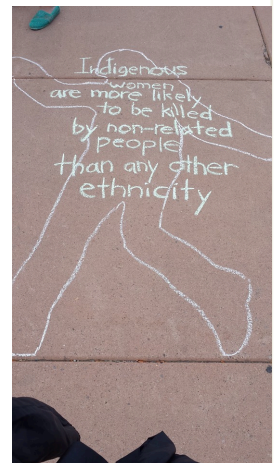 Indigenous
women
are more likely
to be killed
by non-related
people
than any other
ethnicity